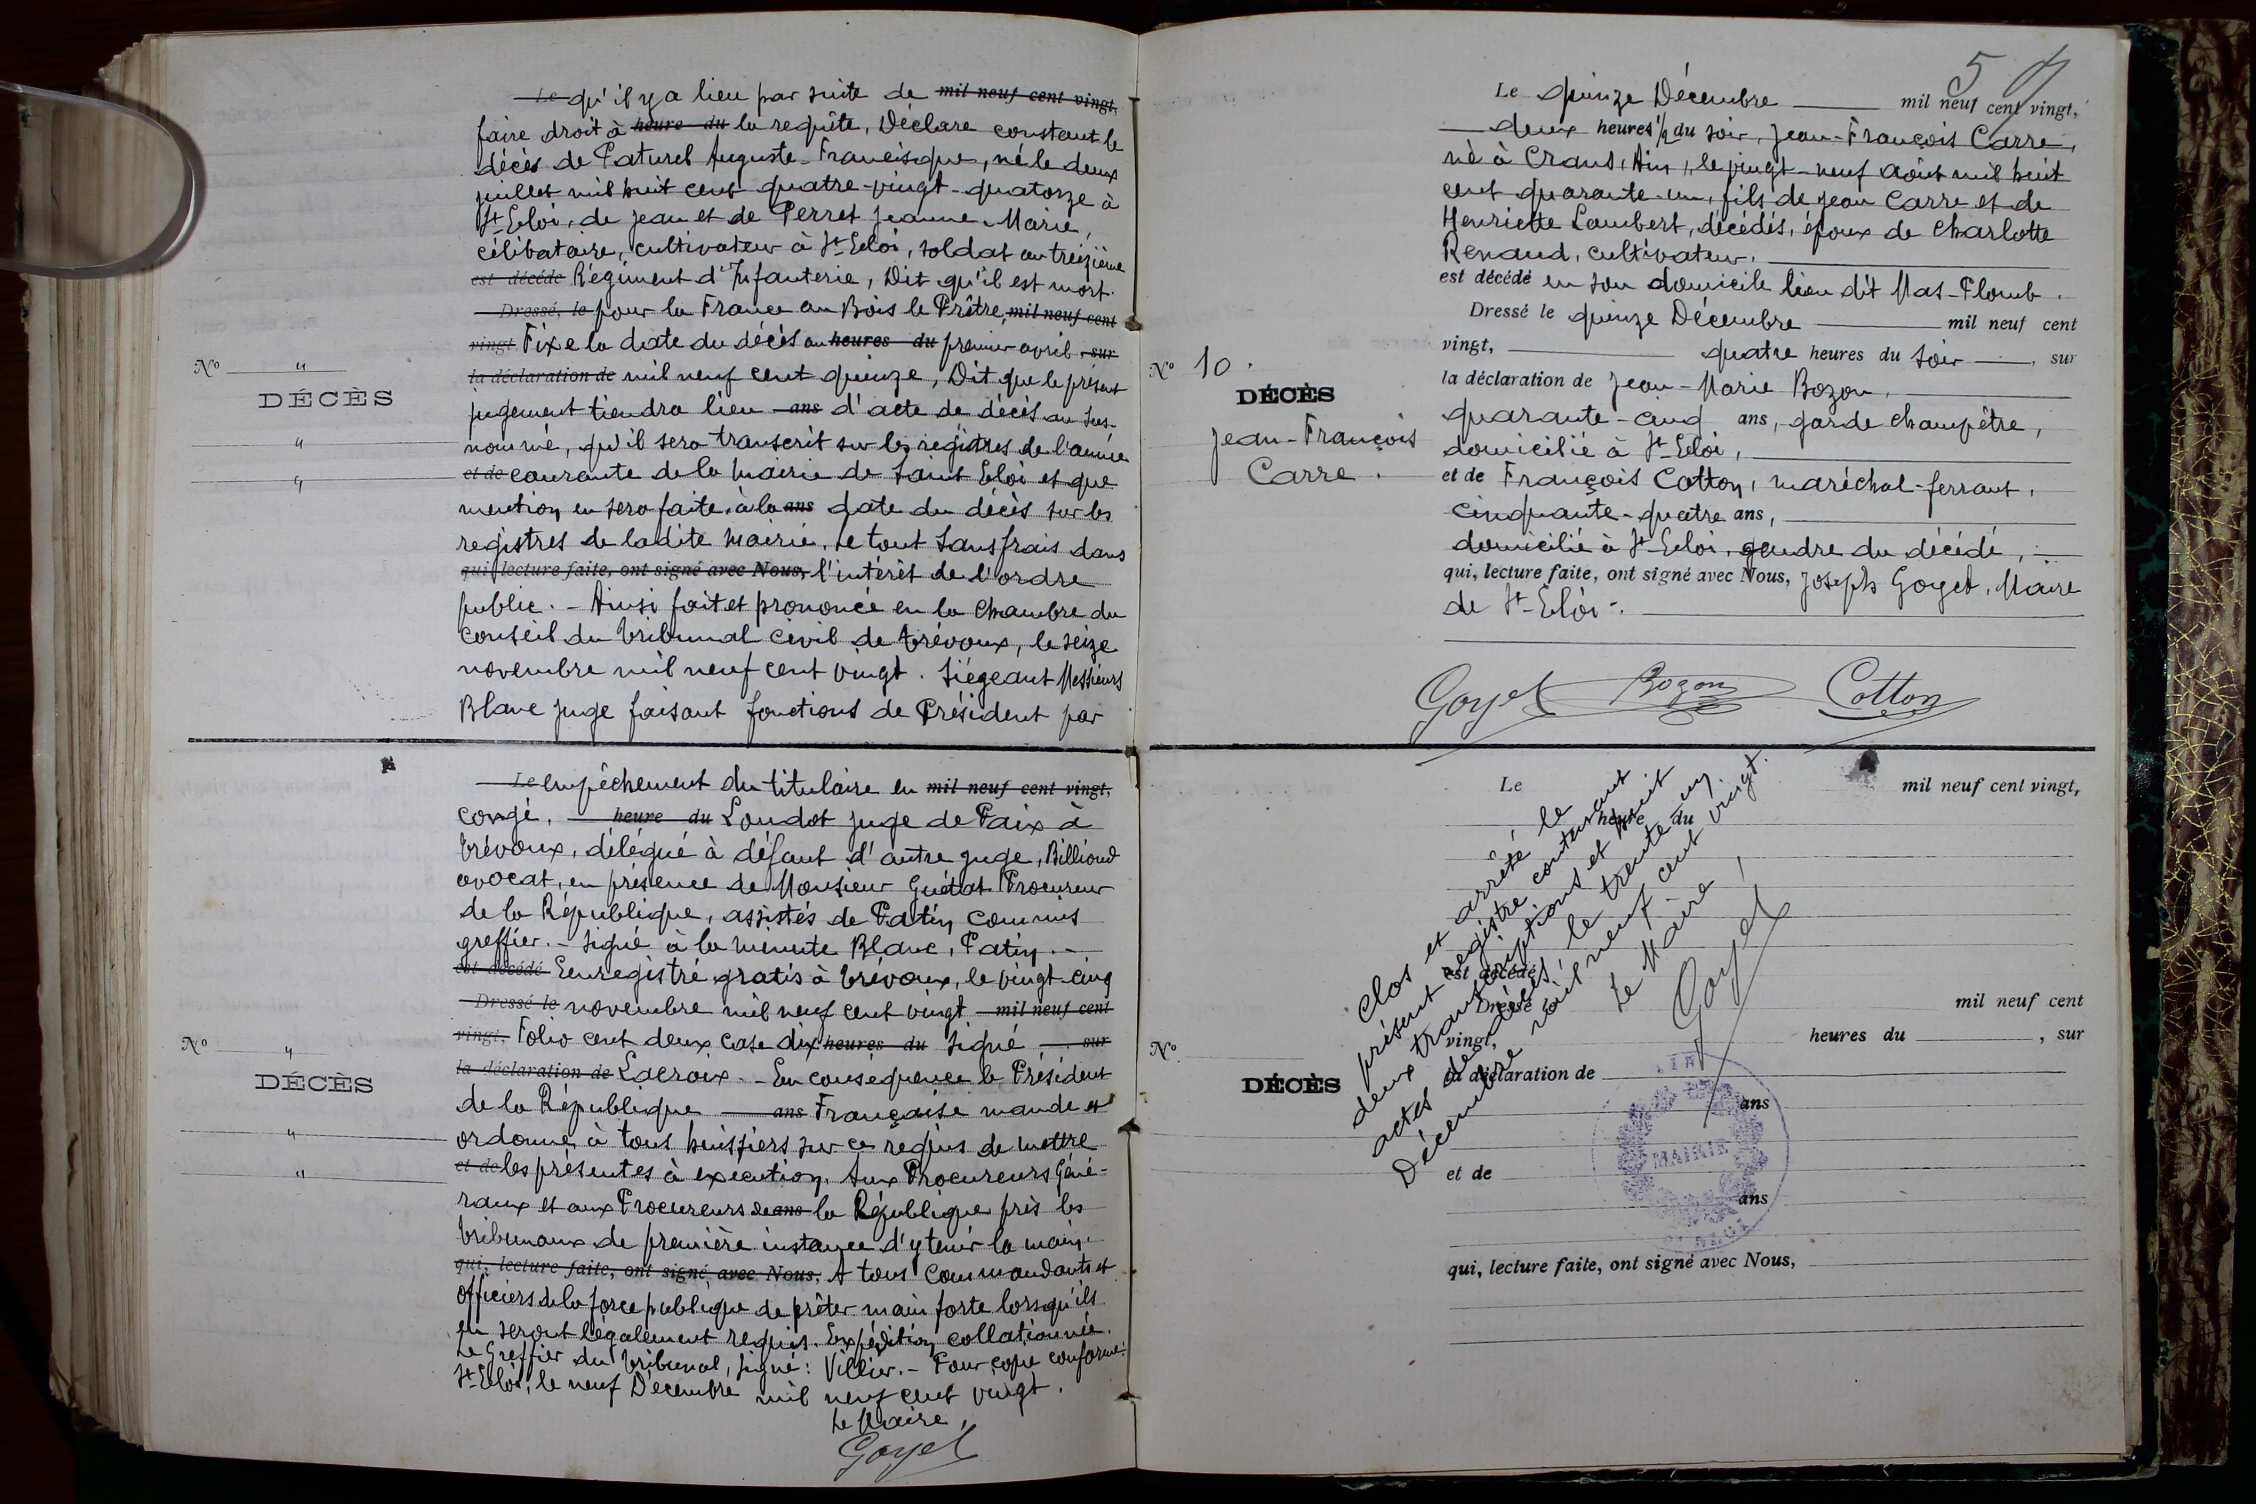 Le qu'il y a lieu par suite de mil neuf cent vingt,
faire droit à heure du la requête, Déclare constant le
décès de Paturel Auguste-Francisque, né le deux
juillet mil huit cent quatre-vingt-quatorze à
St-Eloi, de Jean et de Perret Jeanne-Marie,
célibataire, cultivateur à St-Eloi, soldat au treizième
est décédé Régiment d'Infanterie, Dit qu'il est mort
Dressé, le pour la France au Bois le Prêtre, mil neuf cent
vingt, Fixe la date du décès au heures du premier avril, sur
la déclaration de mil neuf cent quinze, Dit que le présent
jugement tiendra lieu ans d'acte de décès au sus-
nommé, qu'il sera transcrit sur les registres de l'année
et de courante de la mairie de Saint Eloi et que
mention en sera faite à la ans date du décès sur les
registres de ladite mairie, Le tout sans frais dans
qui, lecture faite, ont signé avec Nous, l'intérêt de l'ordre
public. - Ainsi fait et prononcé en la Chambre du
Conseil du tribunal civil de trévoux, le seize
novembre mil neuf cent vingt. Siégeant Messieurs
Blanc juge faisant fonctions de Président par
No "
DÉCÈS
"
"
Le empêchement du titulaire en mil neuf cent vingt,
congé, heure du Loudot juge de Paix à
trévoux, délégué à défaut d'autre juge, Billioud
avocat, en présence de Monsieur Guétat Procureur
de la République, assistés de Patin commis
greffier. - Signé à la minute Blanc, Patin. -
est décédé Enregistré gratis à trévoux, le vingt-cinq
Dressé le novembre mil neuf cent vingt mil neuf cent
vingt, Folio cent deux case dix heures du Signé, sur
la déclaration de Lacroix. - En conséquence le Président
de la République ans Française mande et
ordonne à tous huissiers sur ce requis de mettre
et de les présentes à exécution, Aux Procureurs Géné-
raux et aux Procureurs de ans la République près les
tribunaux de première instance d'y tenir la main.
qui, lecture faite, ont signé avec Nous, A tous Commandants et
officiers de la force publique de prêter main forte lorsqu'ils
en seront légalement requis. Expédition collationnée.
Le Greffier du tribunal, signé: Villier. - Pour copie conforme:
St-Eloi, le neuf Décembre mil neuf cent vingt.
Le Maire,
Goyet
No "
DÉCÈS
"
"
5
Le quinze Décembre mil neuf cent vingt,
deux heures 1/2 du soir, Jean-François Carre,
né à Crans, Ain, le vingt-neuf août mil huit
cent quarante-un, fils de Jean Carre et de
Henriette Lambert, décédés, époux de Charlotte
Renaud, cultivateur,
est décédé en son domicile lieu dit Mas-Plomb.
Dressé le quinze Décembre mil neuf cent
vingt, quatre heures du soir, sur
la déclaration de Jean-Marie Bozon,
quarante-cinq ans, garde champêtre,
domicilié à St-Eloi,
et de François Cotton, maréchal-ferrant,
cinquante-quatre ans,
domicilié à St-Eloi, gendre du décédé,
qui, lecture faite, ont signé avec Nous, Joseph Goyet, Maire
de St-Eloi.
No 10.
DÉCÈS
Jean-François
Carre.
Goyet Bozon Cotton
Le mil neuf cent vingt,
heure du
est décédé
Dressé le mil neuf cent
vingt, heures du , sur
la déclaration de
ans
et de
ans
qui, lecture faite, ont signé avec Nous,
No
DÉCÈS
Clos et arrêté le
présent registre contenant
deux transcriptions et huit
actes de décès, le trente-un
Décembre mil neuf cent vingt.
Le Maire,
Goyet
MAIRIE